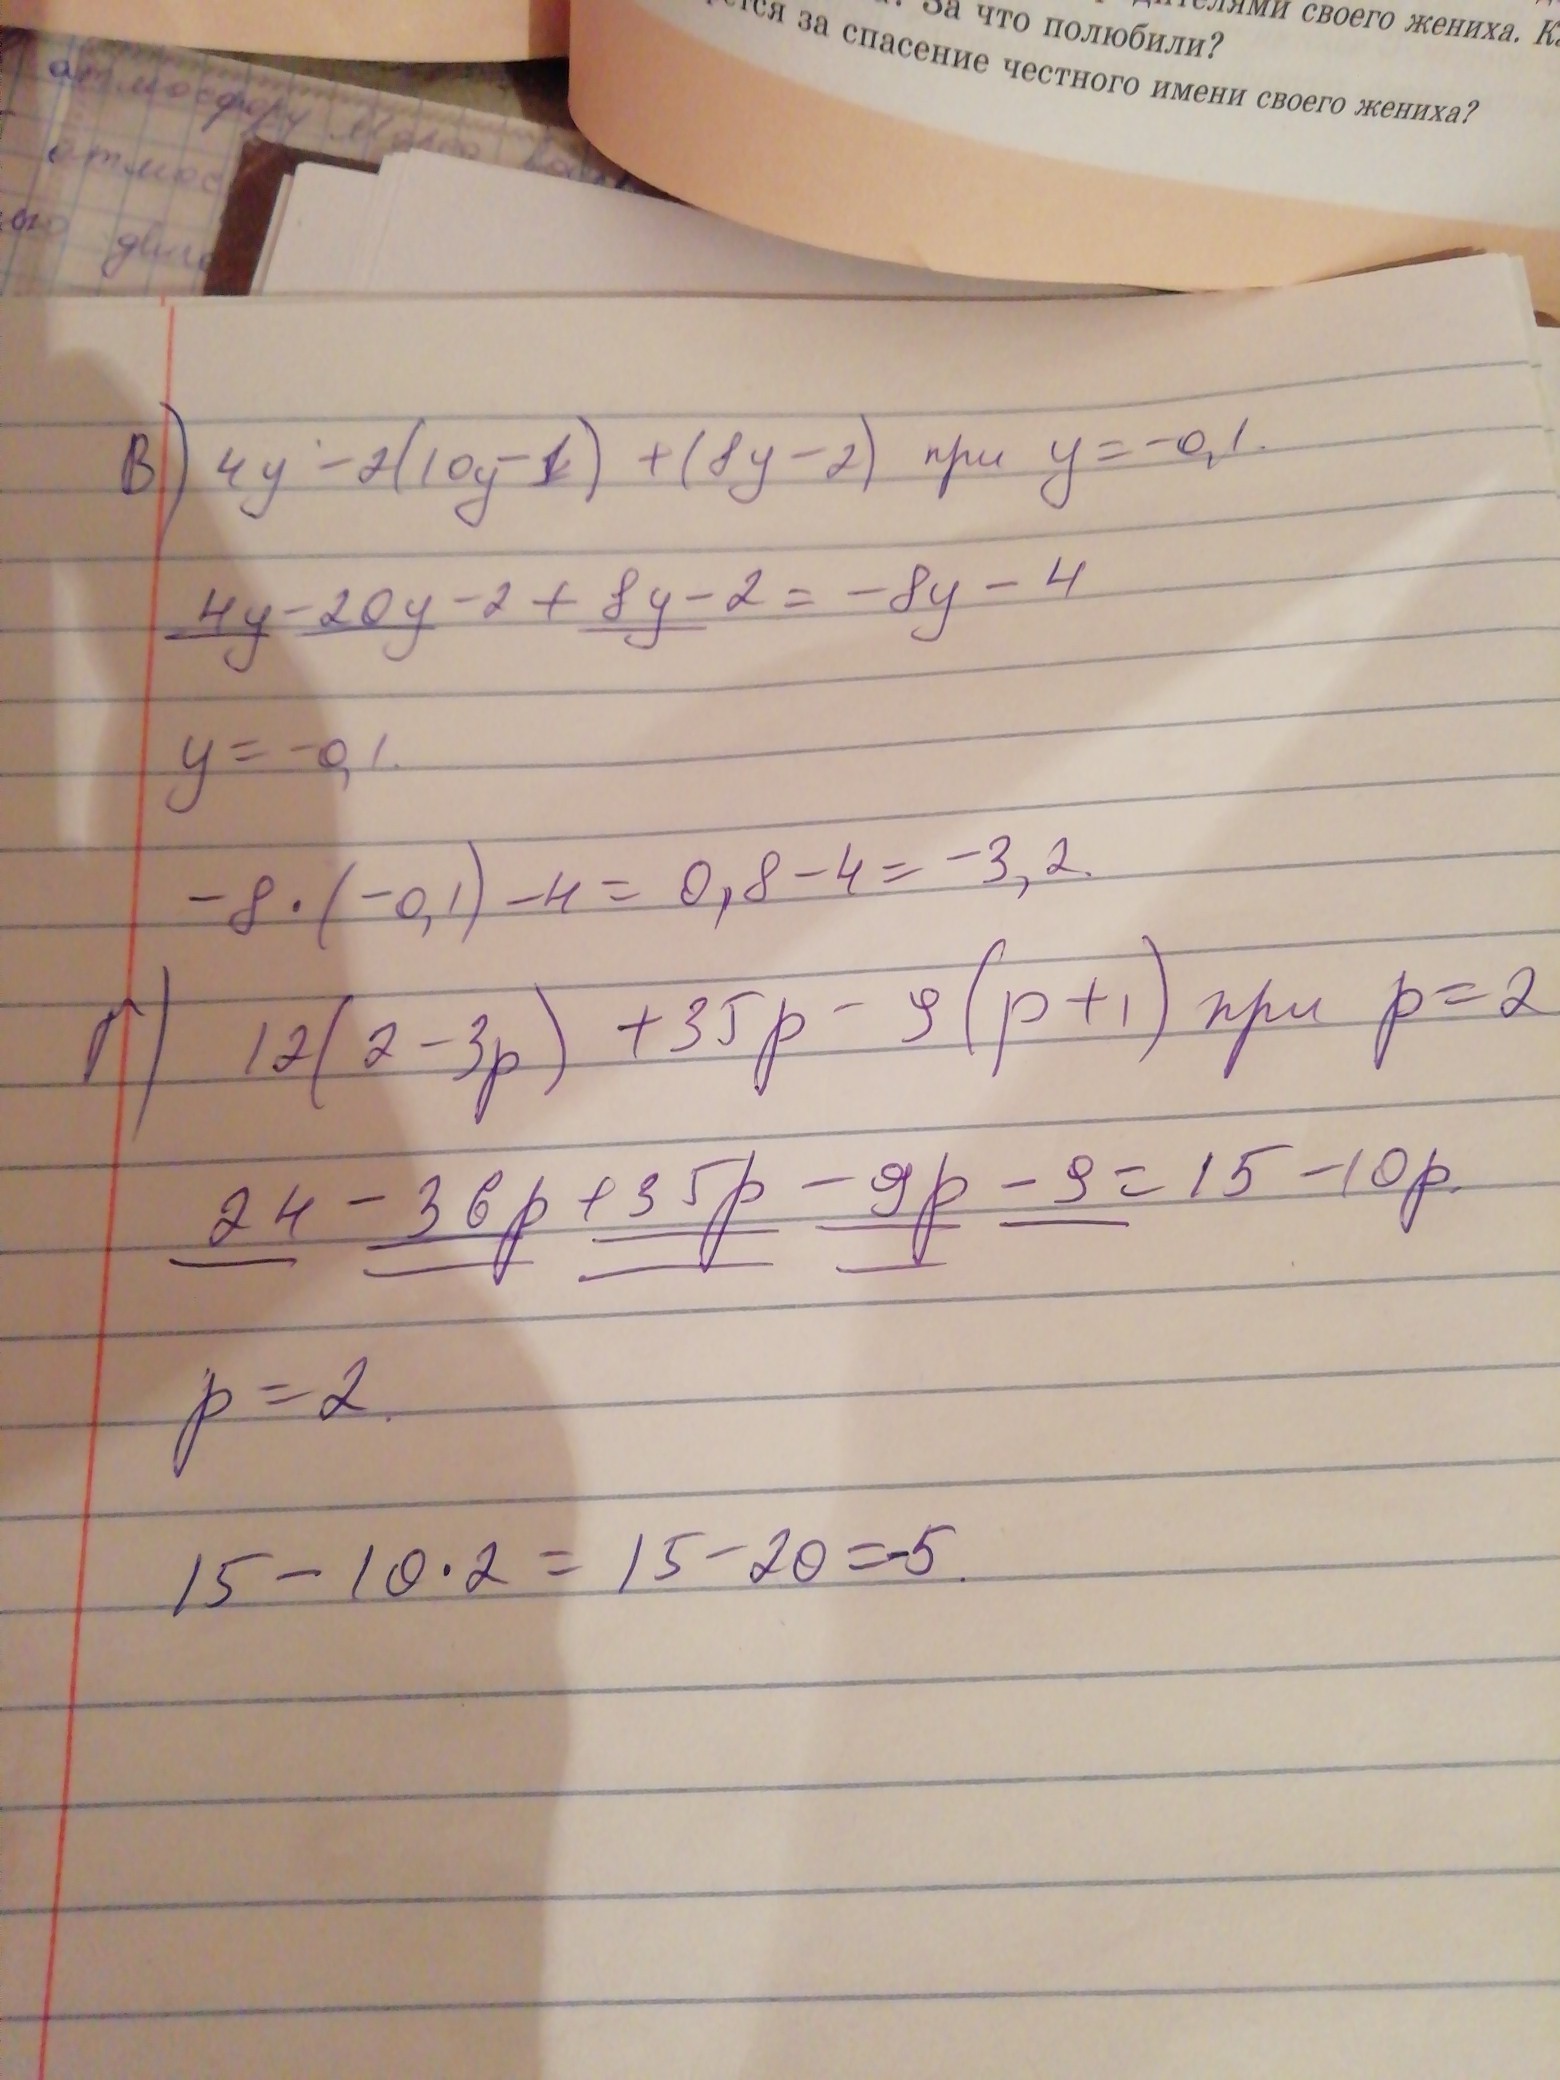 своего жениха.
За что полюбили?
за спасение честного имени своего жениха?
атмосферу
атмос
В) 4y - 2(10y - 1) + (8y - 2) при y = -0,1.
4y - 20y - 2 + 8y - 2 = -8y - 4
y = -0,1.
-8 · (-0,1) - 4 = 0,8 - 4 = -3,2.
Г) 12(2 - 3p) + 35p - 9(p + 1) при p = 2
24 - 36p + 35p - 9p - 9 = 15 - 10p.
p = 2.
15 - 10 · 2 = 15 - 20 = -5.